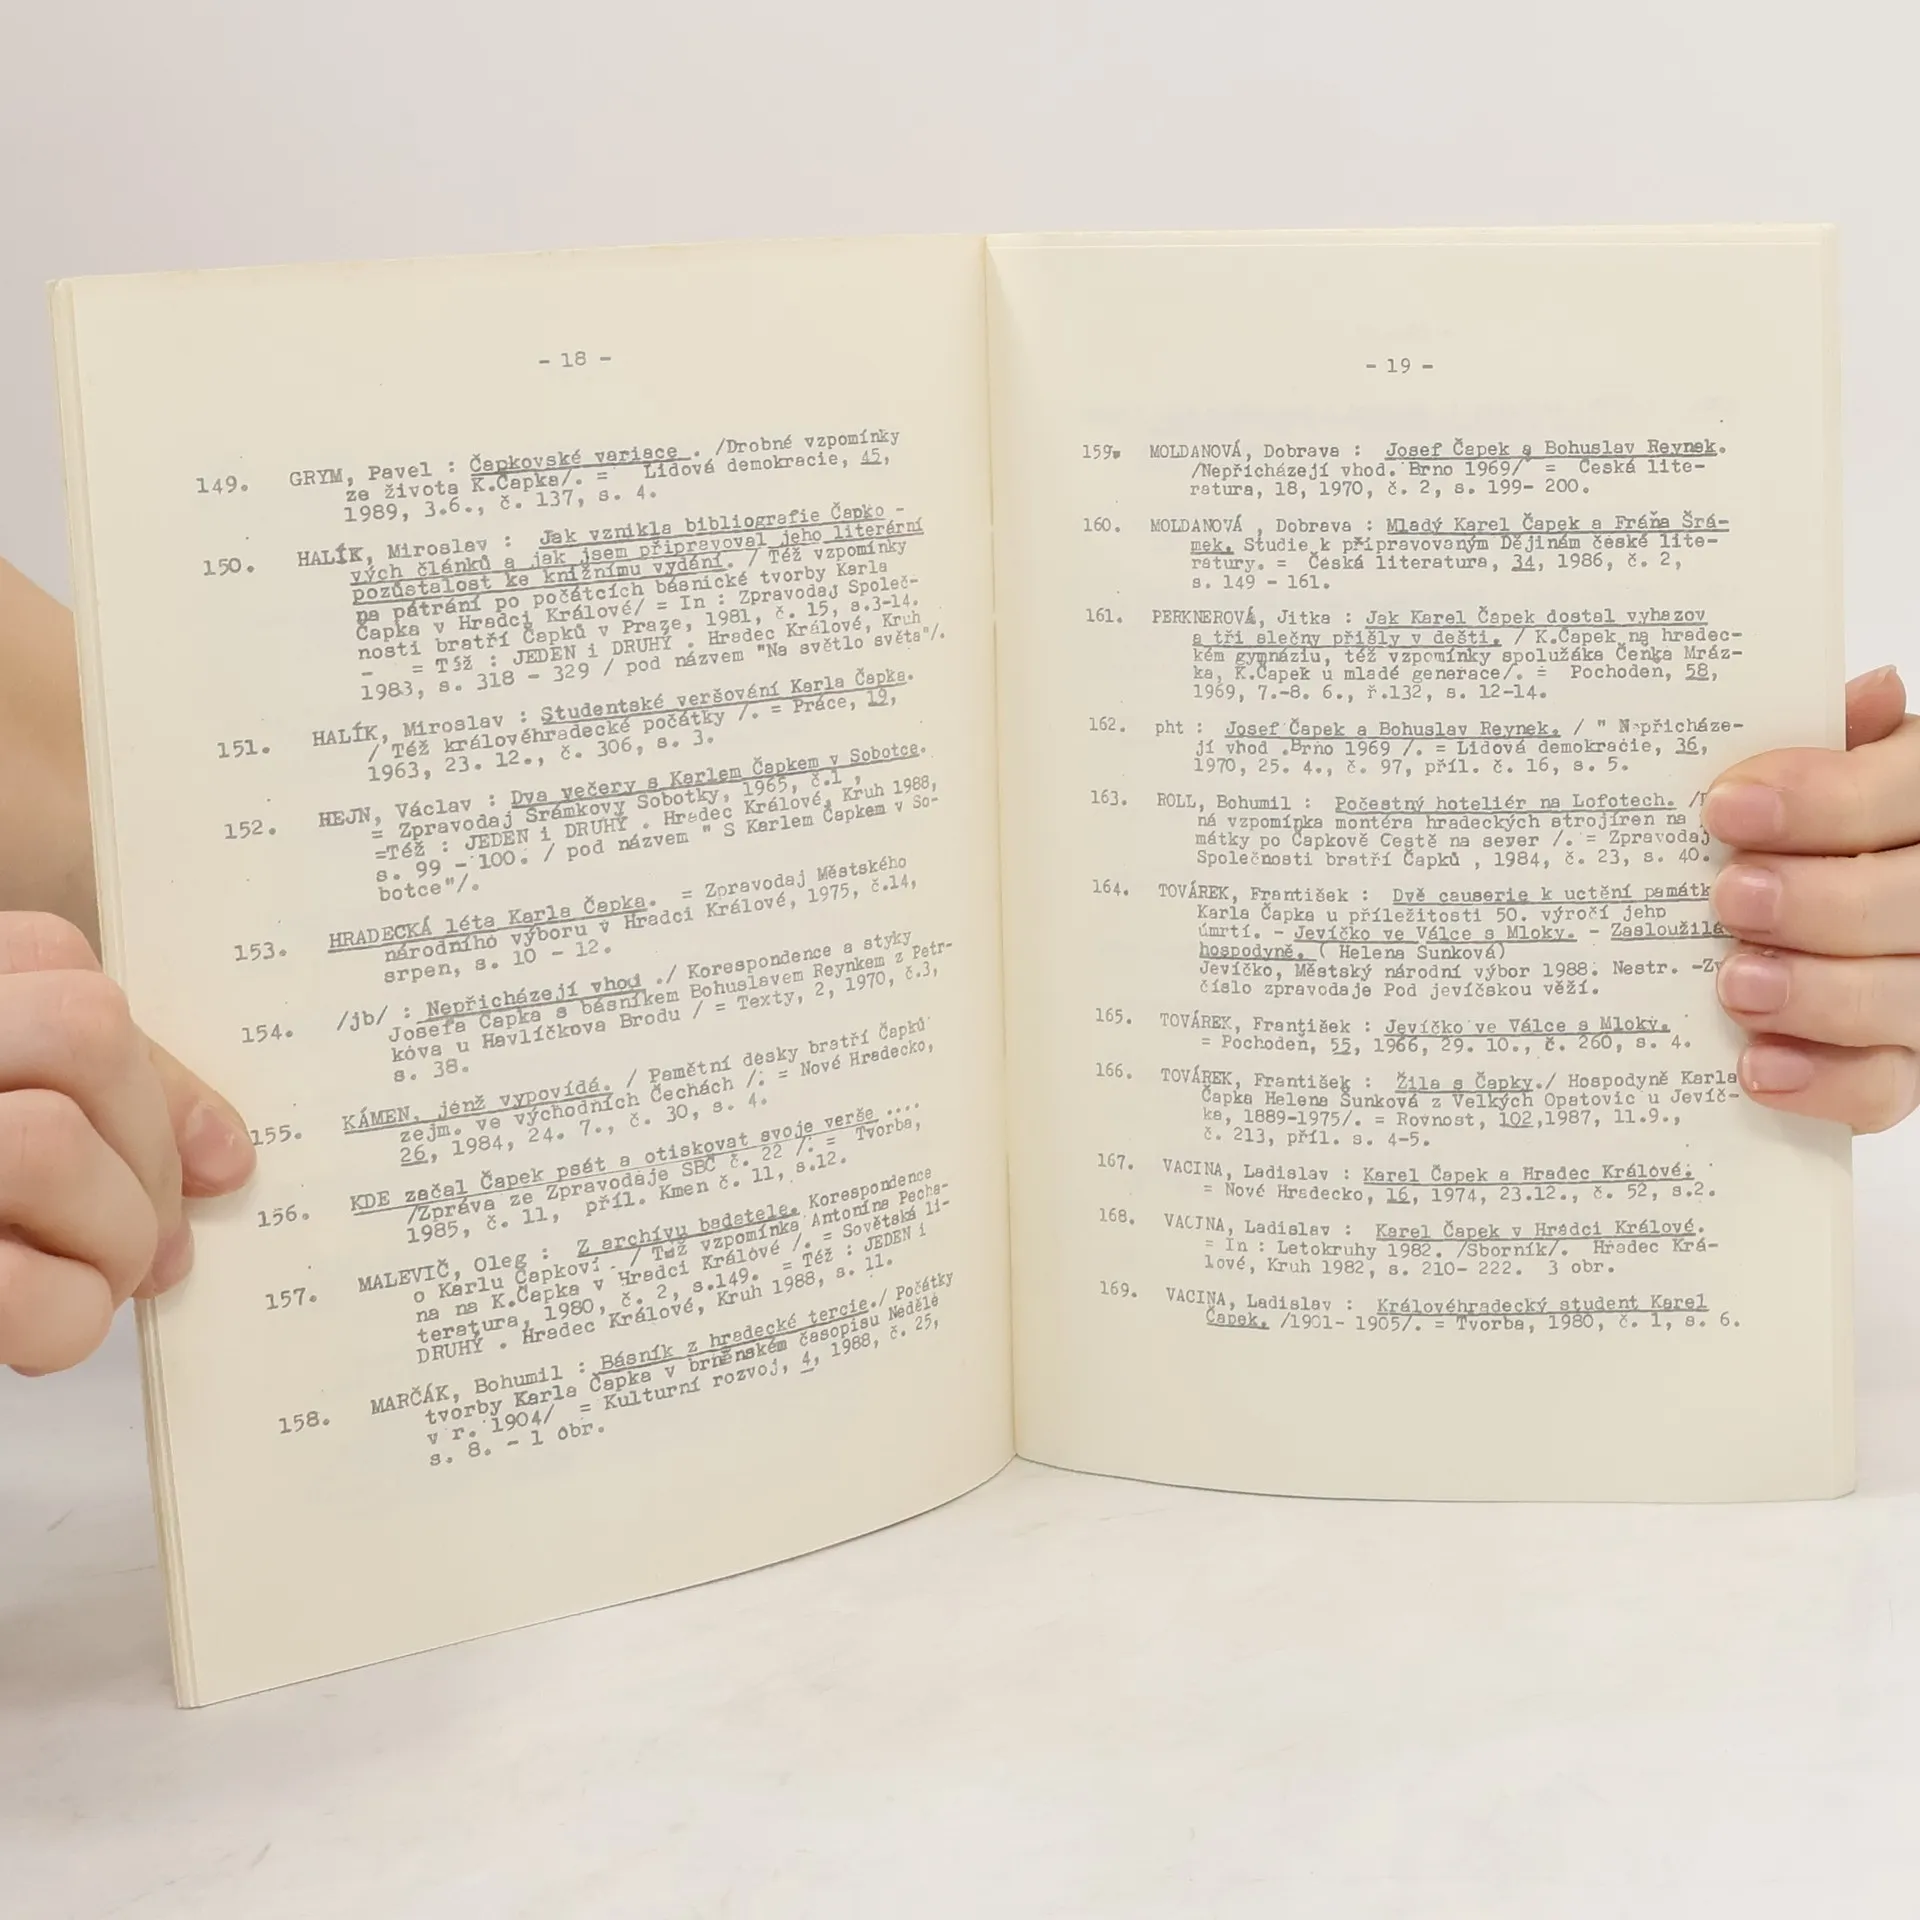 - 18 -
149. GRYM, Pavel : Čapkovské variace . /Drobné vzpomínky
ze života K.Čapka/. = Lidová demokracie, 45,
1989, 3.6., č. 137, s. 4.
150. HALÍK, Miroslav : Jak vznikla bibliografie Čapko -
vých článků a jak jsem připravoval jeho literární
pozůstalost ke knižnímu vydání. / Též vzpomínky
na pátrání po počátcích básnické tvorby Karla
Čapka v Hradci Králové/ = In : Zpravodaj Společ-
nosti bratří Čapků v Praze, 1981, č. 15, s.3-14.
- = Též : JEDEN i DRUHÝ . Hradec Králové, Kruh
1983, s. 318 - 329 / pod názvem "Na světlo světa"/.
151. HALÍK, Miroslav : Studentské veršování Karla Čapka.
/ Též královéhradecké počátky /. = Práce, 19,
1963, 23. 12., č. 306, s. 3.
152. HEJN, Václav : Dva večery s Karlem Čapkem v Sobotce.
= Zpravodaj Šrámkovy Sobotky, 1965, č.1 ,
=Též : JEDEN i DRUHÝ . Hradec Králové, Kruh 1988,
s. 99 - 100. / pod názvem " S Karlem Čapkem v So-
botce"/.
153. HRADECKÁ léta Karla Čapka. = Zpravodaj Městského
národního výboru v Hradci Králové, 1975, č.14,
srpen, s. 10 - 12.
154. /jb/ : Nepřicházejí vhod ./ Korespondence a styky
Josefa Čapka s básníkem Bohuslavem Reynkem z Petr-
kova u Havlíčkova Brodu / = Texty, 2, 1970, č.3,
s. 38.
155. KÁMEN, jenž vypovídá. / Pamětní desky bratří Čapků
zejm. ve východních Čechách /. = Nové Hradecko,
26, 1984, 24. 7., č. 30, s. 4.
156. KDE začal Čapek psát a otiskovat svoje verše ....
/Zpráva ze Zpravodaje SBČ č. 22 /. = Tvorba,
1985, č. 11, příl. Kmen č. 11, s.12.
157. MALEVIČ, Oleg : Z archívu badatele. Korespondence
o Karlu Čapkovi. / Též vzpomínka Antonína Pecha-
na na K.Čapka v Hradci Králové /. = Sovětská li-
teratura, 1980, č. 2, s.149. = Též : JEDEN i
DRUHÝ . Hradec Králové, Kruh 1988, s. 11.
158. MARČÁK, Bohumil : Básník z hradecké tercie./ Počátky
tvorby Karla Čapka v brněnském časopisu Neděle
v r. 1904/ = Kulturní rozvoj, 4, 1988, č. 25,
s. 8. - 1 obr.
- 19 -
159. MOLDANOVÁ, Dobrava : Josef Čapek a Bohuslav Reynek.
/Nepřicházejí vhod. Brno 1969/ = Česká lite-
ratura, 18, 1970, č. 2, s. 199- 200.
160. MOLDANOVÁ , Dobrava : Mladý Karel Čapek a Fráňa Šrá-
mek. Studie k připravovaným Dějinám české lite-
ratury. = Česká literatura, 34, 1986, č. 2,
s. 149 - 161.
161. PERKNEROVÁ, Jitka : Jak Karel Čapek dostal vyhazov
a tři slečny přišly v dešti. / K.Čapek na hradec-
kém gymnáziu, též vzpomínky spolužáka Čeňka Mráz-
ka, K.Čapek u mladé generace/. = Pochodeň, 58,
1969, 7.-8. 6., ř.132, s. 12-14.
162. pht : Josef Čapek a Bohuslav Reynek. / " Nepřicháze-
jí vhod .Brno 1969 /. = Lidová demokracie, 36,
1970, 25. 4., č. 97, příl. č. 16, s. 5.
163. ROLL, Bohumil : Počestný hoteliér na Lofotech. /
ná vzpomínka montéra hradeckých strojíren na
mátky po Čapkově Cestě na sever /. = Zpravodaj
Společnosti bratří Čapků , 1984, č. 23, s. 40.
164. TOVÁREK, František : Dvě causerie k uctění památk
Karla Čapka u příležitosti 50. výročí jeho
úmrtí. - Jevíčko ve Válce s Mloky. - Zasloužilá
hospodyně. ( Helena Šunková)
Jevíčko, Městský národní výbor 1988. Nestr. -Zv
číslo zpravodaje Pod jevíčskou věží.
165. TOVÁREK, František : Jevíčko ve Válce s Mloky.
= Pochodeň, 55, 1966, 29. 10., č. 260, s. 4.
166. TOVÁREK, František : Žila s Čapky./ Hospodyně Karla
Čapka Helena Šunková z Velkých Opatovic u Jevíč-
ka, 1889-1975/. = Rovnost, 102,1987, 11.9.,
č. 213, příl. s. 4-5.
167. VACINA, Ladislav : Karel Čapek a Hradec Králové.
= Nové Hradecko, 16, 1974, 23.12., č. 52, s.2.
168. VACINA, Ladislav : Karel Čapek v Hradci Králové.
= In : Letokruhy 1982. /Sborník/. Hradec Krá-
lové, Kruh 1982, s. 210- 222. 3 obr.
169. VACINA, Ladislav : Královéhradecký student Karel
Čapek. /1901- 1905/. = Tvorba, 1980, č. 1, s. 6.